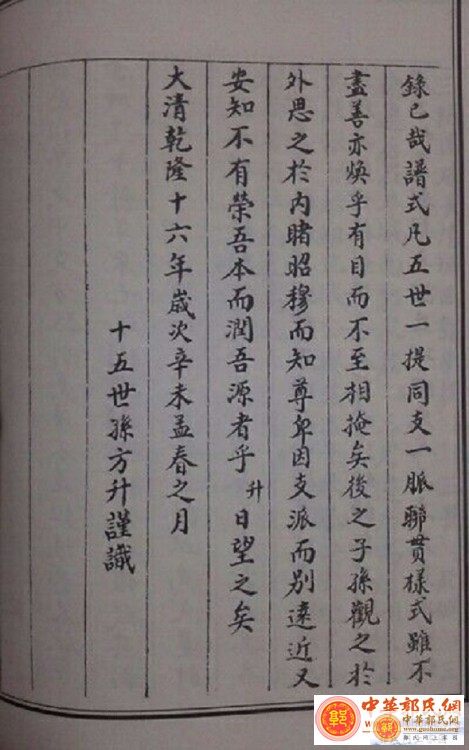 錄已哉譜式凡五世一提同支一脈聯貫樣式雖不
盡善亦煥乎有目而不至相掩矣後之子孫觀之於
外思之於內睹昭穆而知尊卑因支派而別遠近又
安知不有榮吾本而潤吾源者乎升日望之矣
大清乾隆十六年歲次辛未孟春之月
十五世孫方升謹識
中華郭氏網
中華郭氏網
www.guohome.org